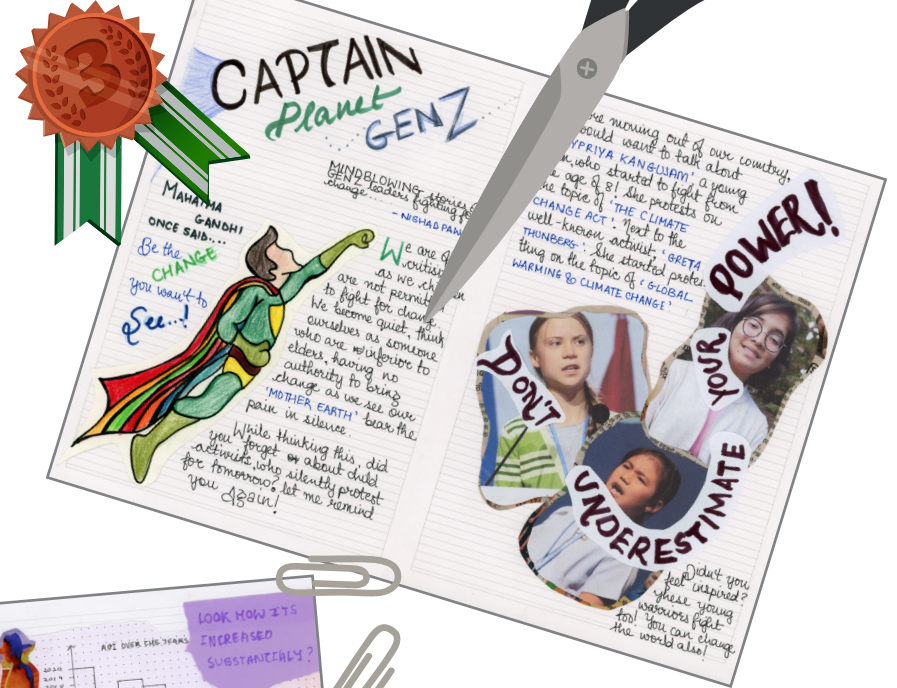 3
CAPTAIN
Planet
GENZ
MINDBLOWING stories
GENZ leaders fighting
change....
- NISHAD
MAHATMA
GANDHI
ONCE SAID....
Be the
CHANGE
you want to
See...!
We are
as we
are not
to fight for change.
We become quiet, think
ourselves as someone
who are inferior to
elders, having no
authority to bring
change as we see our
'MOTHER EARTH' bear the
pain in silence.
While thinking this, did
you forget about child
activists, who silently protest
for tomorrow? let me remind
you Again!
moving out of our country,
would want to talk about
KANGUJAM' a young
who started to fight from
age of 8! She protests on
the topic of 'THE CLIMATE
CHANGE ACT'. Next to the
well-known activist, 'GRETA
THUNBERG'. She started protes
thing on the topic of 'GLOBAL
WARMING & CLIMATE CHANGE'
DON'T
UNDERESTIMATE
YOUR
POWER!
Didn't you
feel inspired?
these young
warriors fight
too! You can change
the world also!
LOOK HOW ITS
INCREASED
SUBSTANTIALLY?
AQI OVER THE YEARS
2020
2019